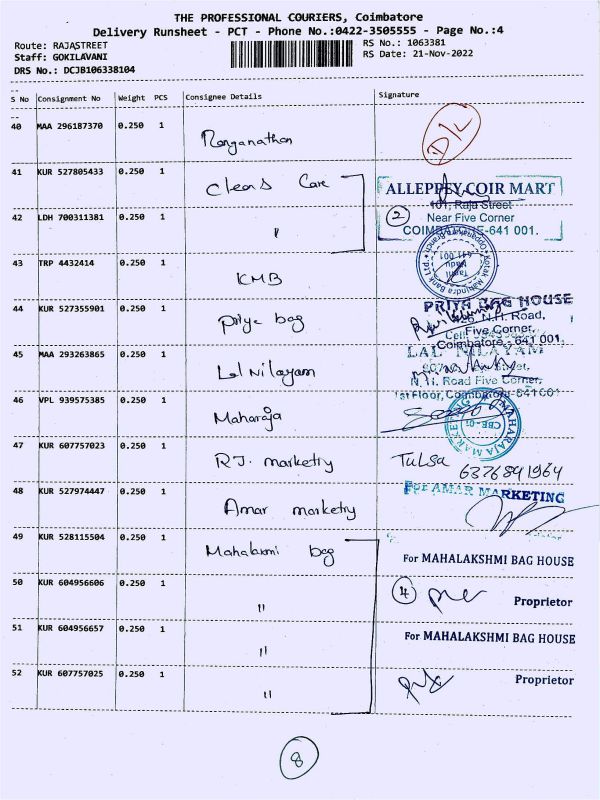 THE PROFESSIONAL COURIERS, Coimbatore
Delivery Runsheet - PCT - Phone No.:0422-3505555 - Page No.:4
Route: RAJASTREET
RS No.: 1063381
Staff: GOKILAVANI
RS Date: 21-Nov-2022
DRS No.: DCJB106338104
S No Consignment No Weight PCS Consignee Details Signature
40 MAA 296187370 0.250 1 Ranganathan D/L
41 KUR 527805433 0.250 1 Cleans Care
ALLEPPEY COIR MART
101, Raja Street
42 LDH 700311381 0.250 1 " 2
Near Five Corner
COIMBATORE-641 001.
43 TRP 4432414 0.250 1 KMB
Kotak Mahindra Bank Ltd.
Tamil Nadu
641 001
44 KUR 527355901 0.250 1 Priya bag
PRIYA BAG HOUSE
N.H. Road,
Five Corner,
Coimbatore - 641 001.
45 MAA 293263865 0.250 1 Lal Nilayam
LAL NILAYAM
Street,
N.H. Road Five Corner,
1st Floor, Coimbatore-641001
46 VPL 939575385 0.250 1 Maharaja
MAHARAJA MARKETING
CBE-01
47 KUR 607757023 0.250 1 RJ. marketry Tulsa 6376841964
48 KUR 527974447 0.250 1 Amar marketry
For AMAR MARKETING
49 KUR 528115504 0.250 1 Mahalaxmi bag
For MAHALAKSHMI BAG HOUSE
50 KUR 604956606 0.250 1 " 4
Proprietor
51 KUR 604956657 0.250 1 "
For MAHALAKSHMI BAG HOUSE
52 KUR 607757025 0.250 1 "
Proprietor
8